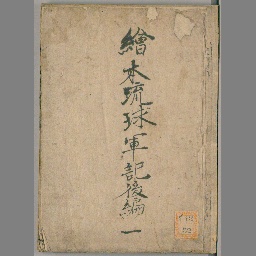 繪本琉球軍記後編 一